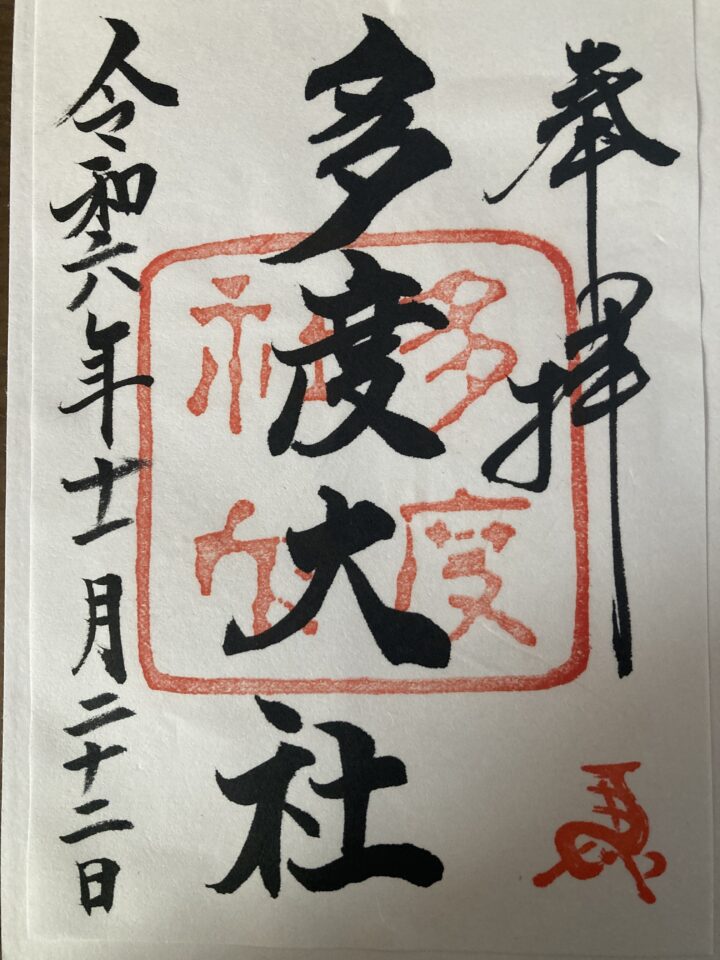 奉拝
多度大社
令和六年十一月二十二日
多度
神社